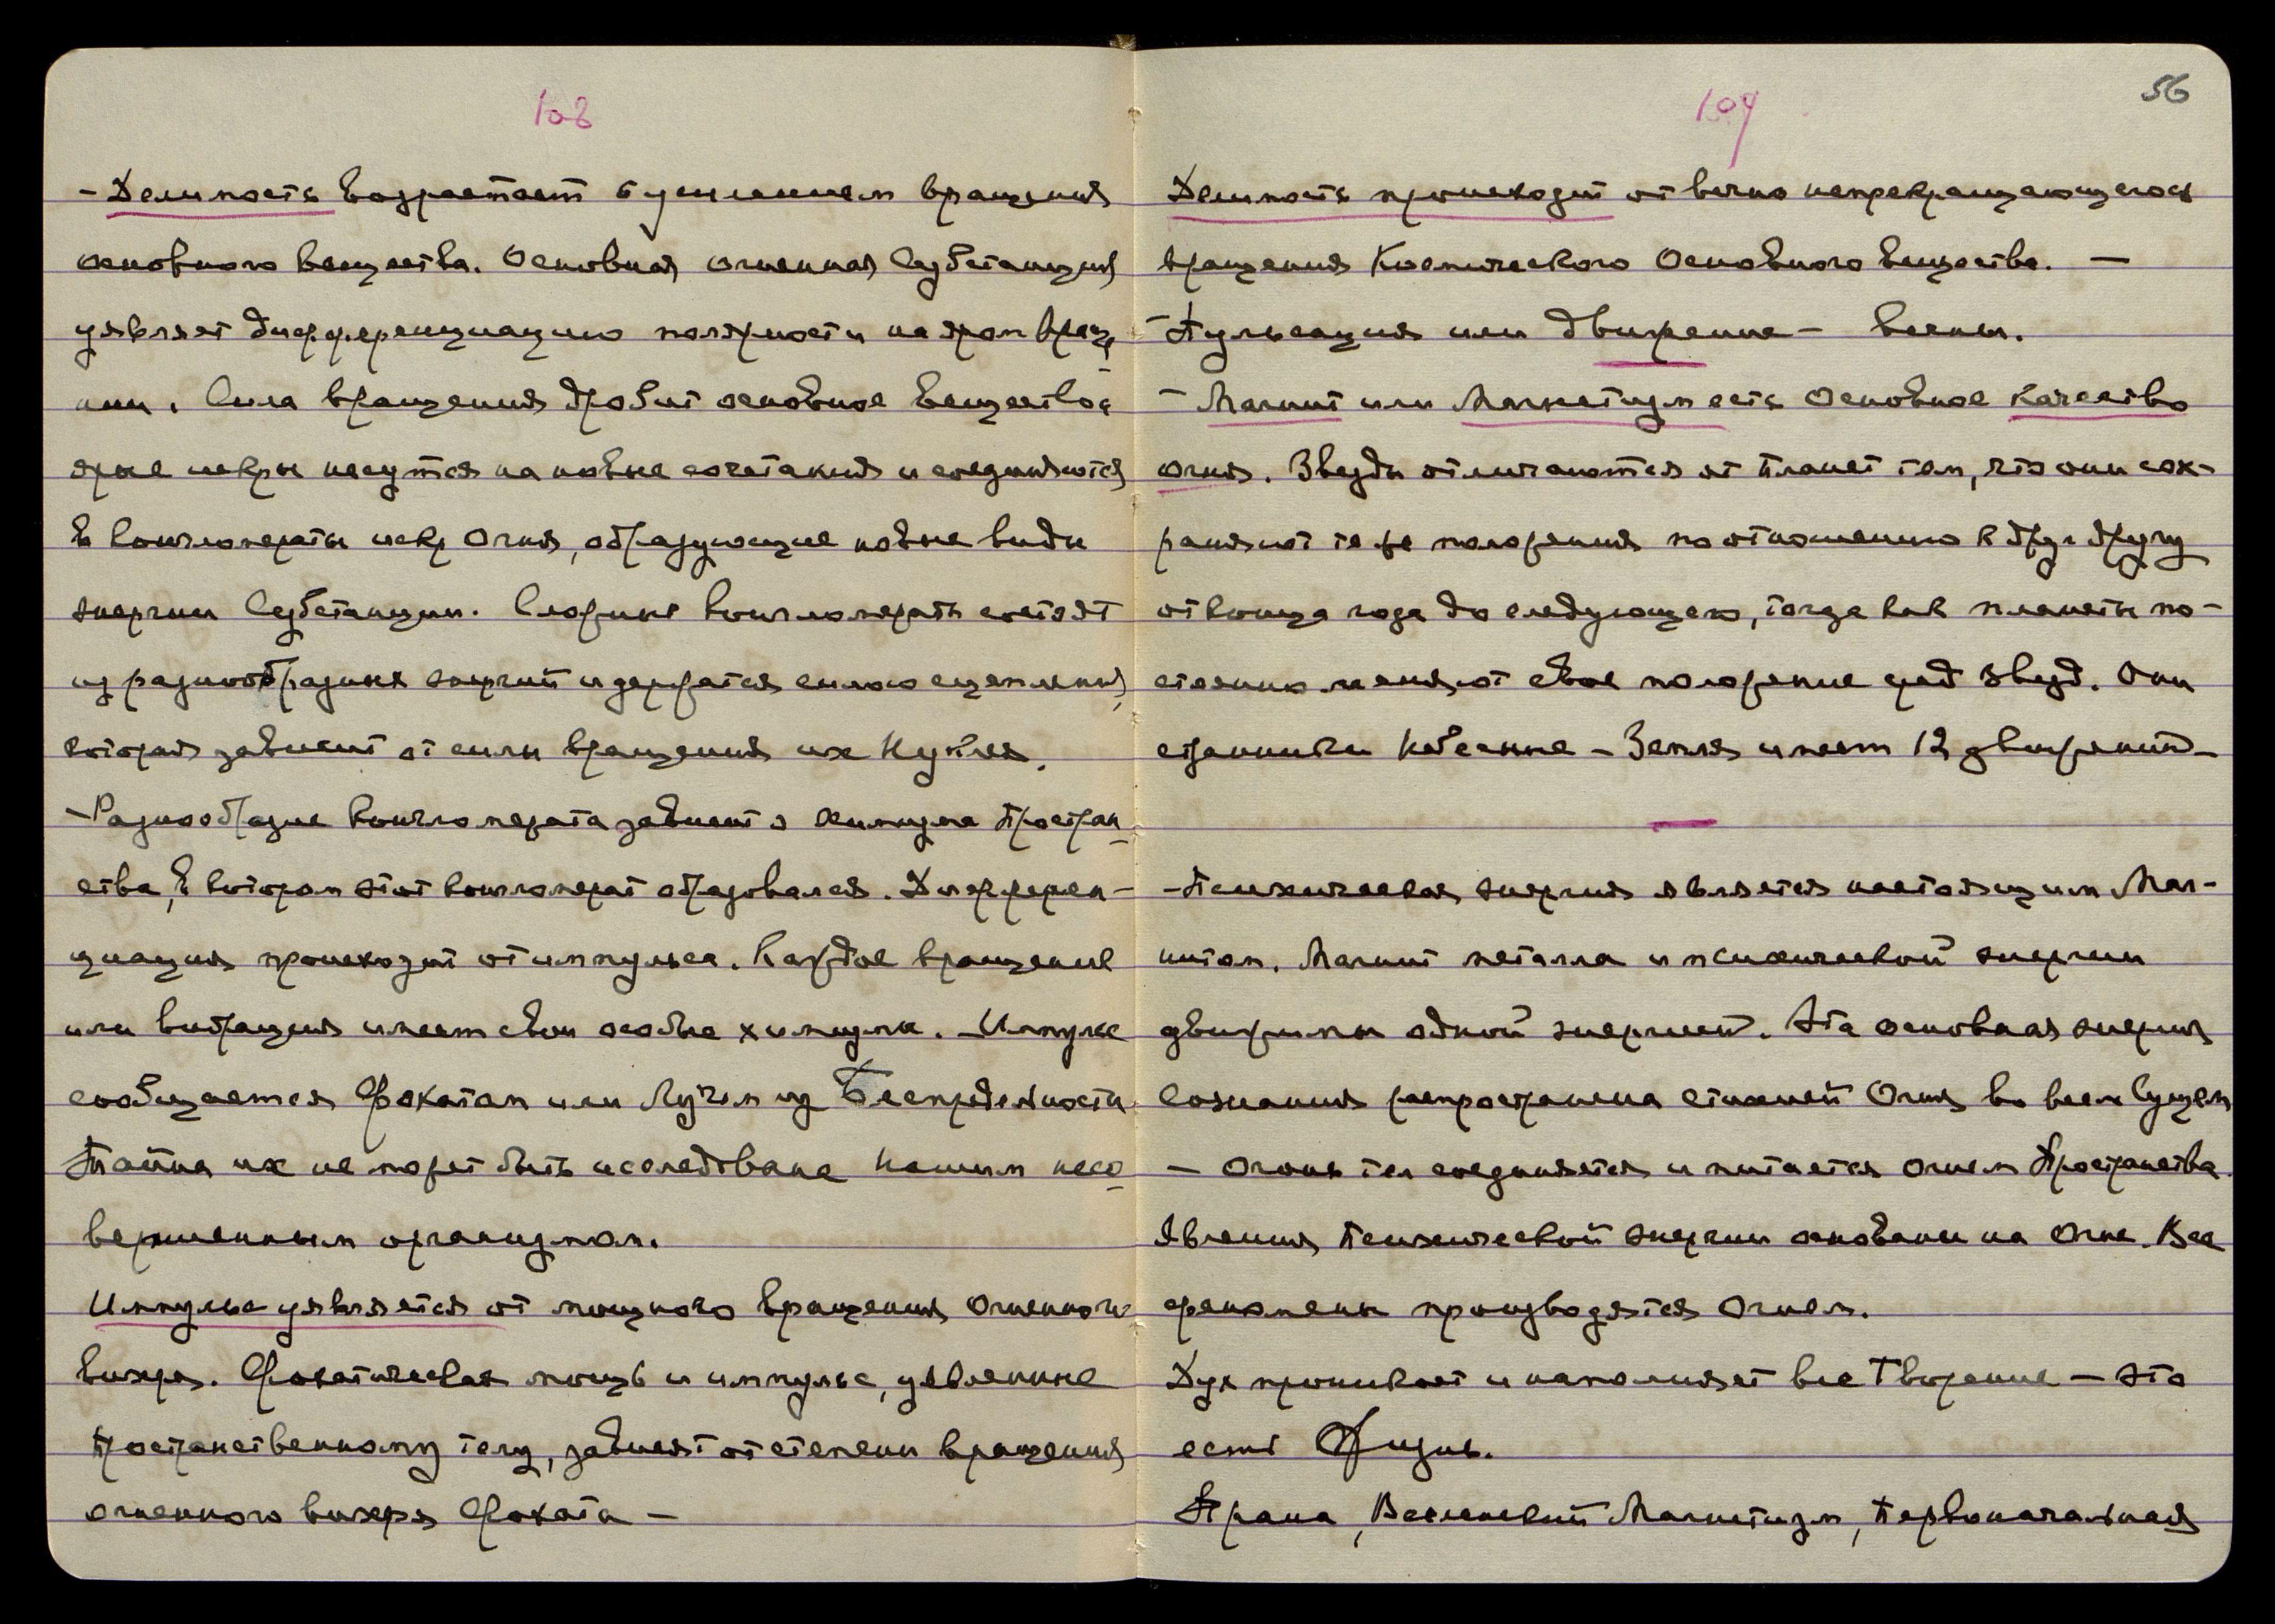 108
- Делимость возрастает с усилением вращения
основного вещества. Основная огненная Субстанция
уявляет дифференциацию полярности на яром враще-
нии. Сила вращения дробит основное вещество и
ярые искры несутся на новые сочетания и соединяются
в конгломераты искр Огня, образующие новые виды
энергии Субстанции. Сложные конгломераты состоят
из разнообразия энергий и держатся силою сцепления,
которая зависит от силы вращения их Нуклея.
- Разнообразие конгломерата зависит от химизма Простран-
ства, в котором этот конгломерат образовался. Дифферен-
циация происходит от импульса. Каждое вращение
или вибрация имеет свои особые химизмы. Импульс
сообщается Фохатом или Лучом из Беспредельности.
Тайна их не может быть исследована нашим несо-
вершенным организмом.
Импульс уявляется от мощного вращения Огненного
вихря. Фохатическая мощь и импульс, уявленные
пространственному телу, зависят от степени вращения
огненного вихря Фохата -
56
109
Делимость происходит от вечно непрекращающегося
вращения Космического Основного вещества. -
- Пульсация или движение - вечны.
- Магнит или Магнетизм есть Основное качество
огня. Звезды отличаются от планет тем, что они сох-
раняют те же положения по отношению к друг другу
от конца года до следующего, тогда как планеты по-
стоянно меняют свое положение сред звезд. Они
странники небесные - Земля имеет 12 движений -
- Психическая энергия является настоящим Маг-
нитом. Магнит металла и психической энергии
движимы одной энергией. Эта основная энергия
сознания распространена стихией Огня во всем Сущем
- Огонь тел соединяется и питается огнем Пространства.
Явления Психической энергии основаны на Огне. Все
феномены производятся Огнем.
Дух проникает и наполняет все Творение - это
есть Жизнь.
Прана, Вселенский Магнетизм, Первоначальная